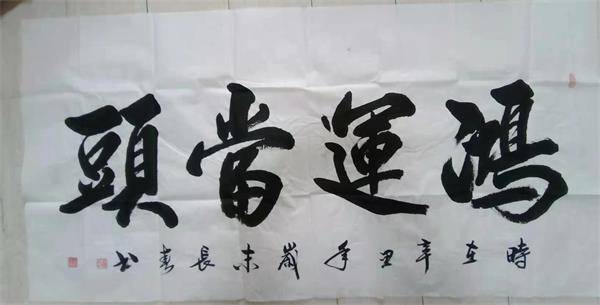 鴻運當頭
時在辛丑年歲末長春書